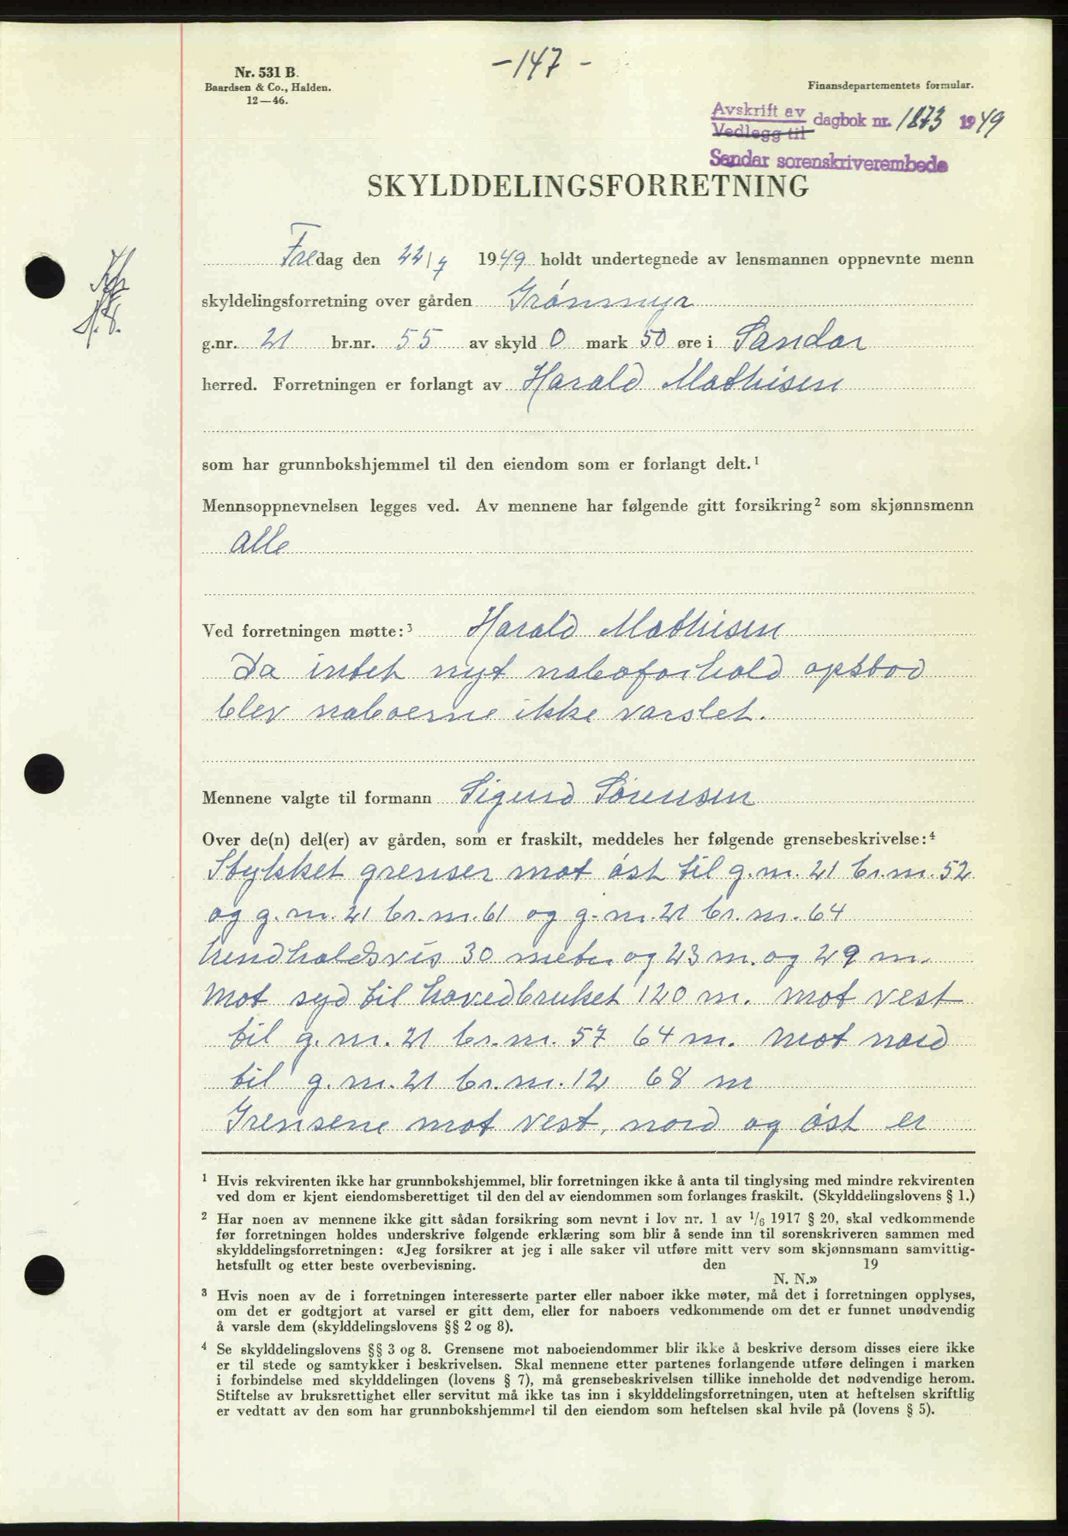 -147-
Nr. 531 B.
Baardsen & Co., Halden.
12—46.
Finansdepartementets formular.
Avskrift av
Vedlegg til
dagbok nr. 1873 1949
Sandar sorenskriverembede
SKYLDDELINGSFORRETNING
Fredag den 22/7 1949 holdt undertegnede av lensmannen oppnevnte menn
skyldelingsforretning over gården Grønmyr
g.nr. 21 br.nr. 55 av skyld 0 mark 50 øre i Sandar
herred. Forretningen er forlangt av Harald Mathisen
som har grunnbokshjemmel til den eiendom som er forlangt delt.¹
Mennsoppnevnelsen legges ved. Av mennene har følgende gitt forsikring² som skjønnsmenn
alle
Ved forretningen møtte:³ Harald Mathisen
Da intet nyt naboforhold opstod
blev naboerne ikke varslet.
Mennene valgte til formann Sigurd Sørensen
Over de(n) del(er) av gården, som er fraskilt, meddeles her følgende grensebeskrivelse:⁴
Stykket grenser mot øst til g.nr. 21 br.nr. 52
og g.nr. 21 br.nr. 61 og g.nr. 21 br.nr. 64
henholdsvis 30 meter og 23 m. og 29 m.
Mot syd til hovedbruket 120 m. mot vest
til g.nr. 21 br.nr. 57 64 m. mot nord
til g.nr. 21 br.nr. 12 68 m
Grensene mot vest, nord og øst er
¹ Hvis rekvirenten ikke har grunnbokshjemmel, blir forretningen ikke å anta til tinglysing med mindre rekvirenten
ved dom er kjent eiendomsberettiget til den del av eiendommen som forlanges fraskilt. (Skylddelingslovens § 1.)
² Har noen av mennene ikke gitt sådan forsikring som nevnt i lov nr. 1 av 1/6 1917 § 20, skal vedkommende
før forretningen holdes underskrive følgende erklæring som blir å sende inn til sorenskriveren sammen med
skylddelingsforretningen: «Jeg forsikrer at jeg i alle saker vil utføre mitt verv som skjønnsmann samvittig-
hetsfullt og etter beste overbevisning. den 19
N. N.»
³ Hvis noen av de i forretningen interesserte parter eller naboer ikke møter, må det i forretningen opplyses,
om det er godtgjort at varsel er gitt dem, eller for naboers vedkommende om det er funnet unødvendig
å varsle dem (skylddelingslovens §§ 2 og 8).
⁴ Se skylddelingslovens §§ 3 og 8. Grensene mot naboeiendommer blir ikke å beskrive dersom disses eiere ikke
er til stede og samtykker i beskrivelsen. Skal mennene etter partenes forlangende utføre delingen i marken
i forbindelse med skylddelingen (lovens § 7), må grensebeskrivelsen tillike inneholde det nødvendige herom.
Stiftelse av bruksrettighet eller servitut må ikke tas inn i skylddelingsforretningen, uten at heftelsen skriftlig
er vedtatt av den som har grunnbokshjemmel til den eiendom som heftelsen skal hvile på (lovens § 5).